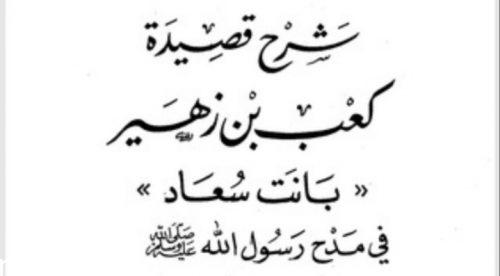 شَرْح قَصِيدَة
كَعْب بْن زُهَير
« بَانَت سُعَاد »
في مَدْح رَسُول الله ﷺ